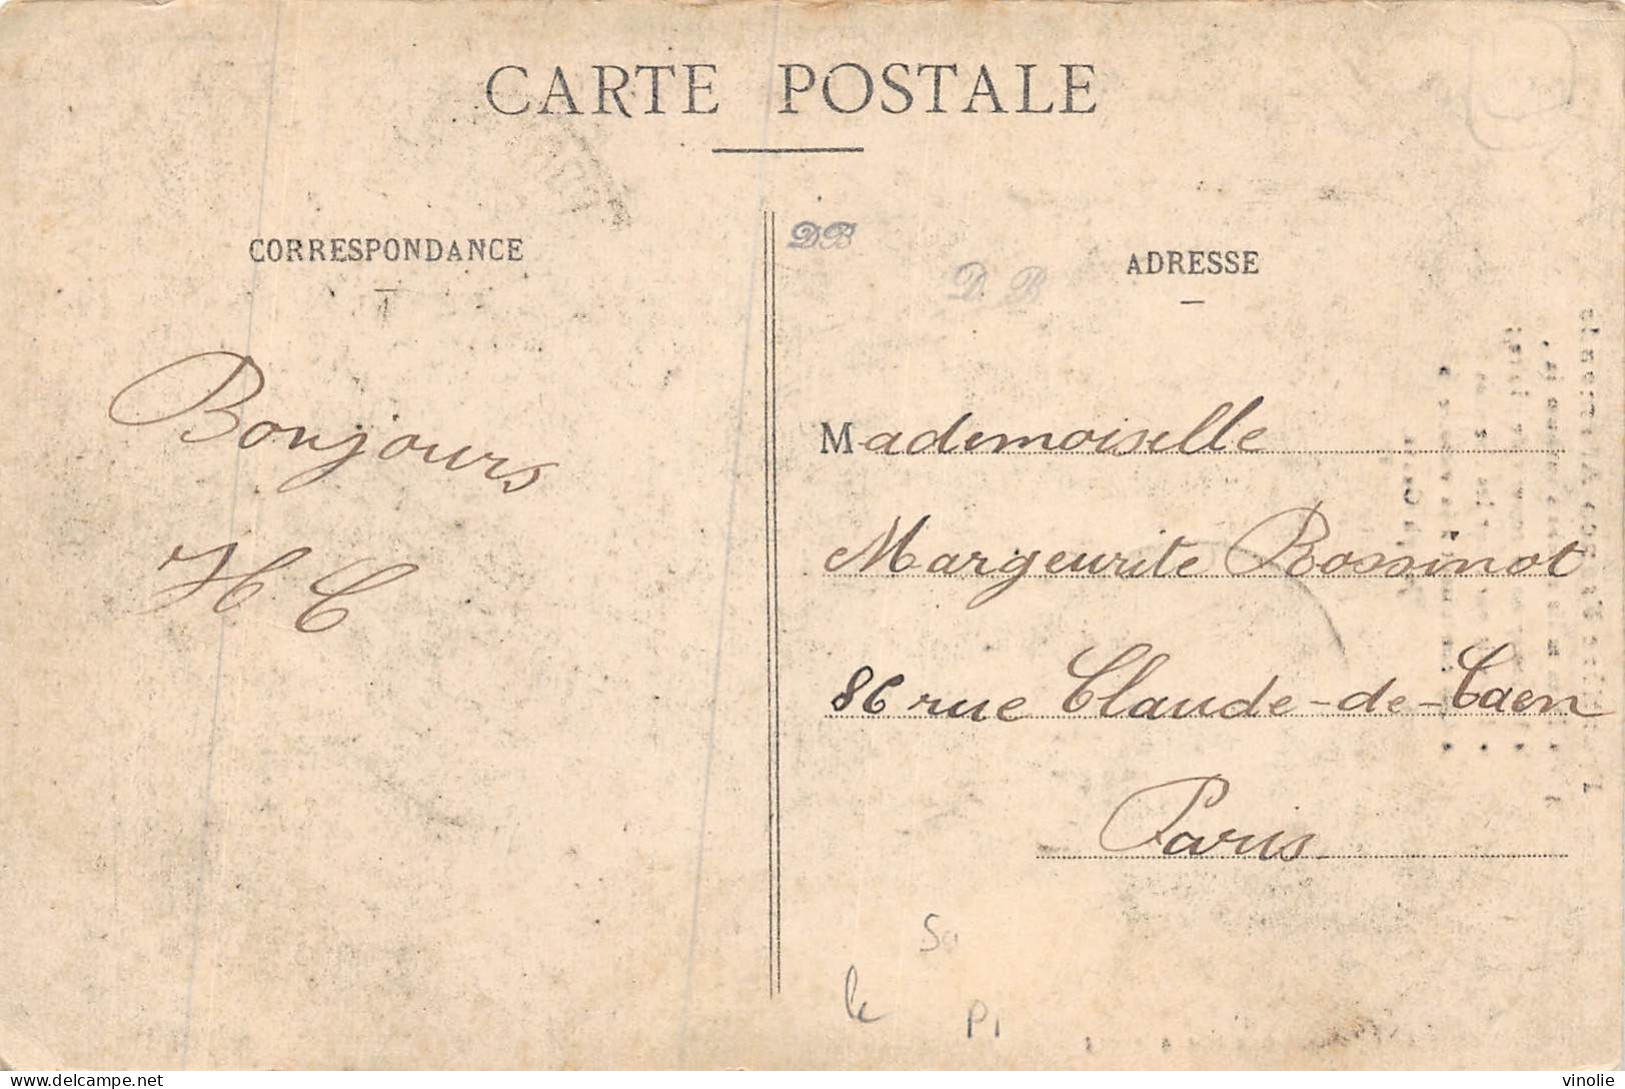 CARTE POSTALE
CORRESPONDANCE
Bonjours
H C
DB
D. B
ADRESSE
Mademoiselle
Margeurite Rossinot
86 rue Claude-de-Caen
Paris
Sa
le
P1
delcampe.net
vinolie